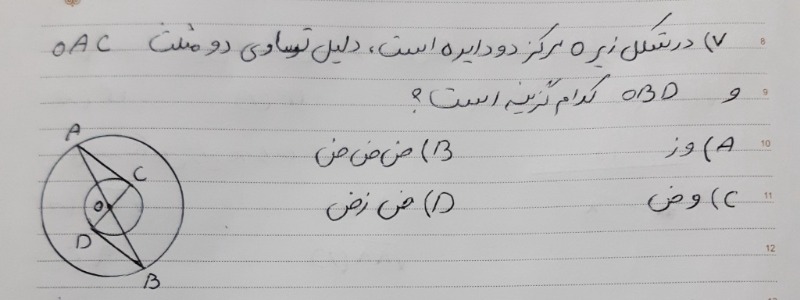 ۷) در شکل زیر O مرکز دو دایره است، دلیل تساوی دو مثلث OAC
و OBD کدام گزینه است؟
A) وز
B) ض ض ض
C) وض
D) ض ز ض
A
C
O
D
B
8
9
10
11
12